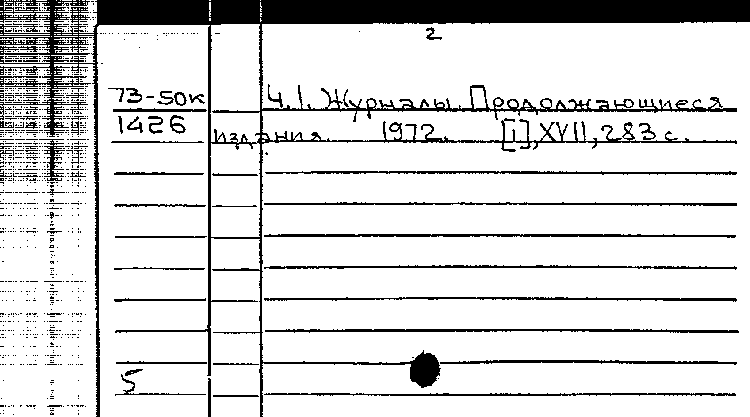 2
73-50к Ч.1. Журналы. Продолжающиеся
1426 издания. 1972. [1], XVII, 283 с.
5